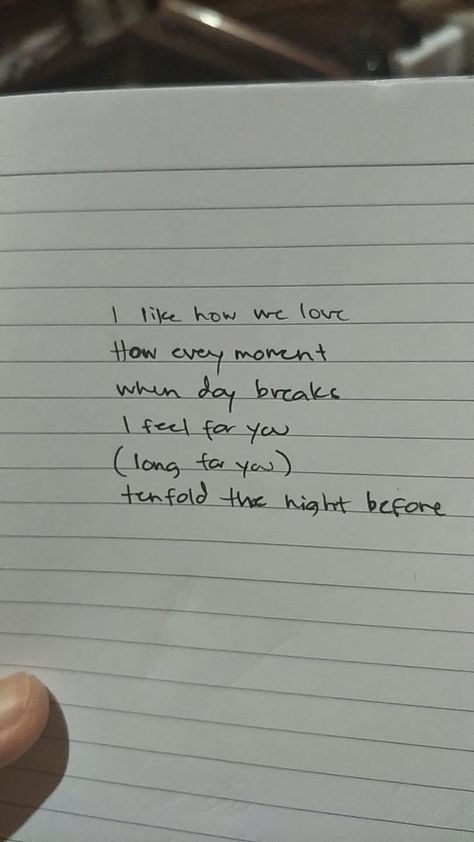 I like how we love
How every moment
when day breaks
I feel for you
(long for you)
tenfold the night before